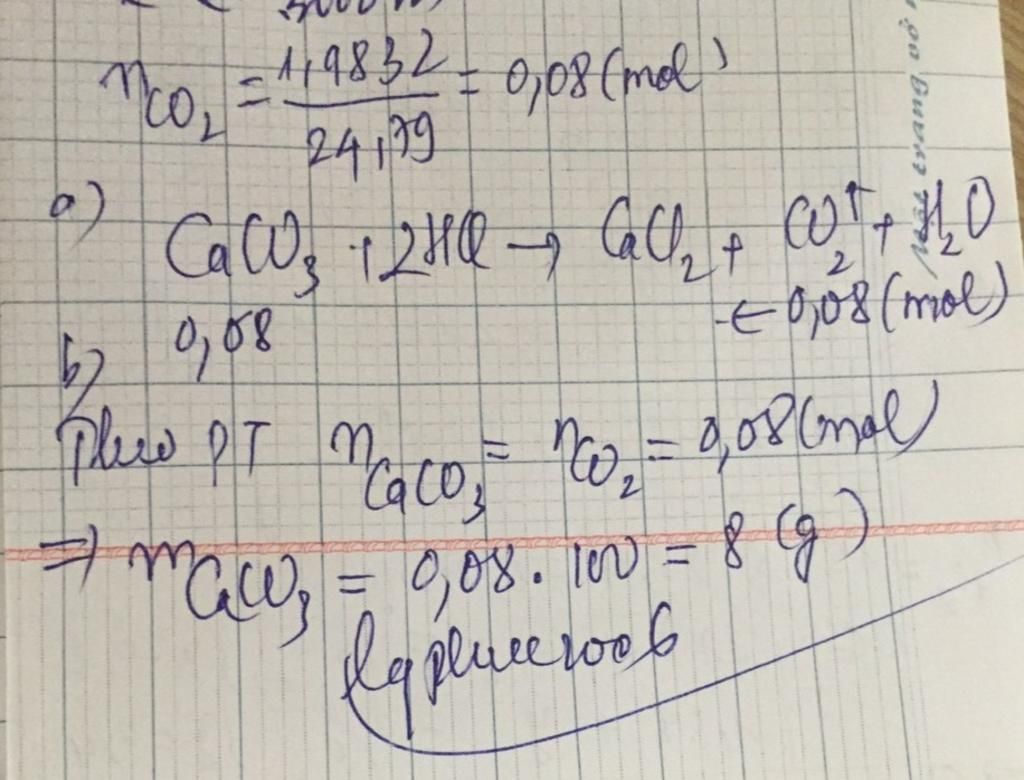 n_CO₂ = 1,9832 / 24,79 = 0,08 (mol)
a)
CaCO₃ + 2HCl → CaCl₂ + CO₂↑ + H₂O
0,08 ← 0,08 (mol)
b)
Theo PT n_CaCO₃ = n_CO₂ = 0,08 (mol)
⇒ m_CaCO₃ = 0,08 . 100 = 8 (g)